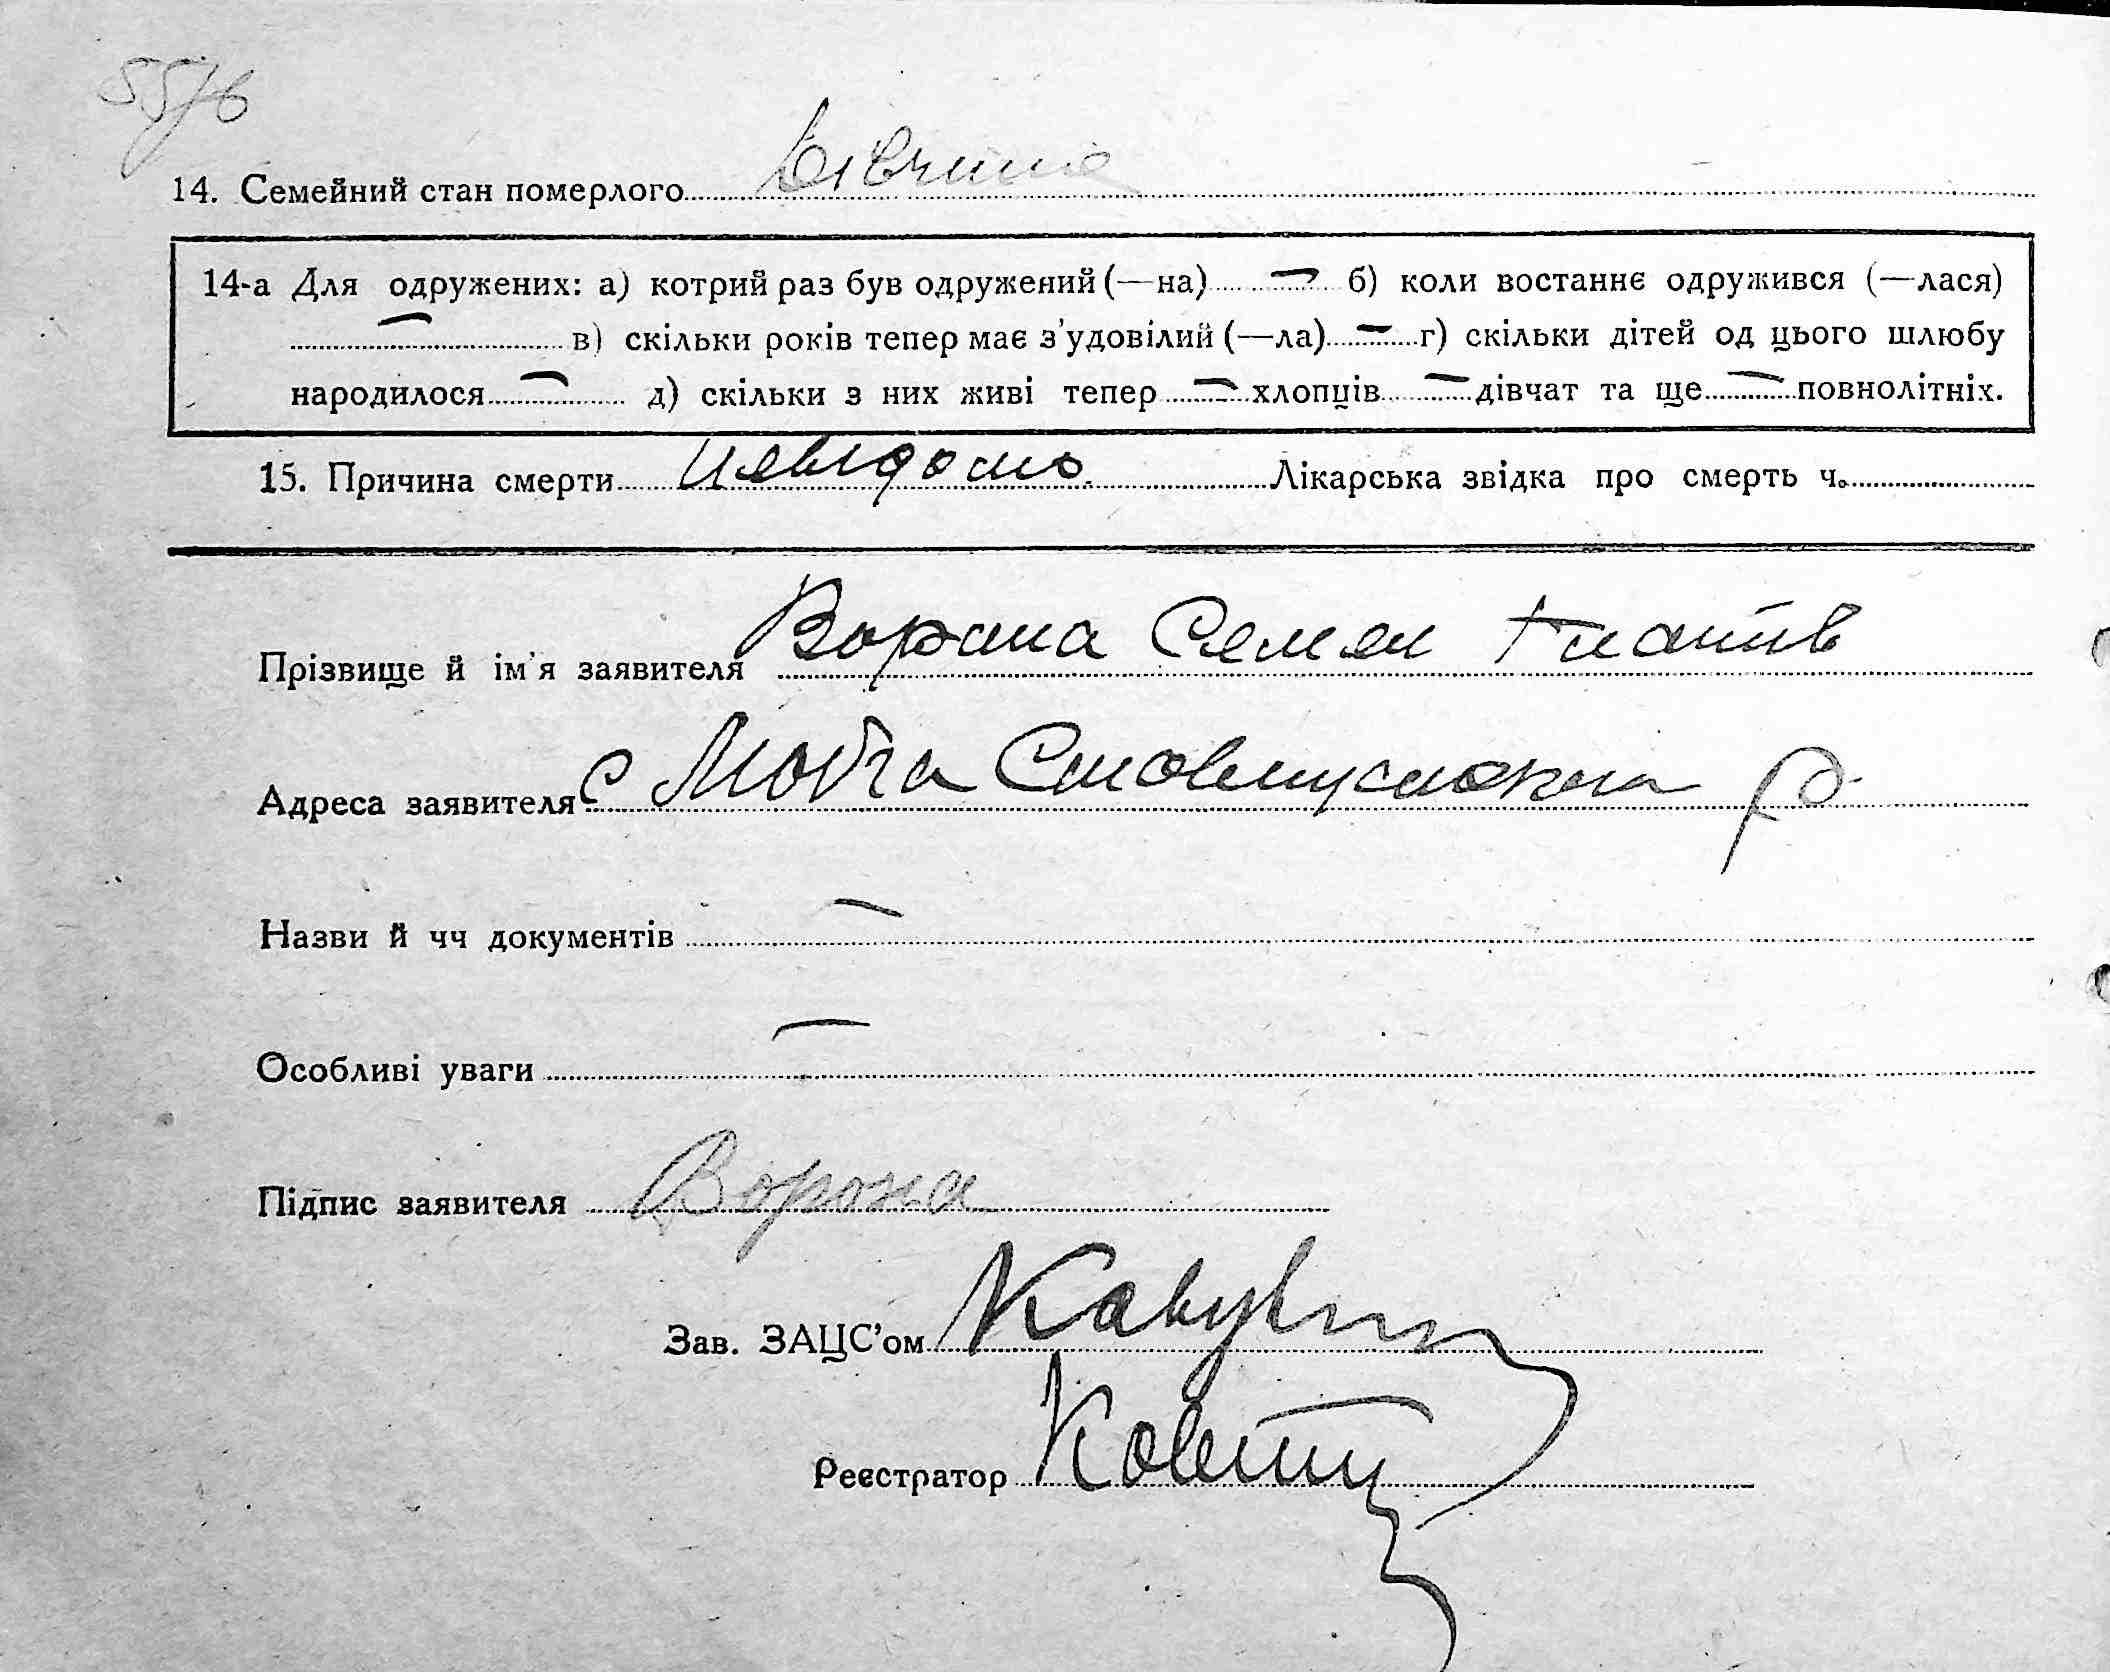 557в
14. Семейний стан померлого дівчина
14-а Для одружених: а) котрий раз був одружений (—на) — б) коли востаннє одружився (—лася)
— в) скільки років тепер має з'удовілий (—ла) — г) скільки дітей од цього шлюбу
народилося — д) скільки з них живі тепер — хлопців — дівчат та ще — повнолітніх.
15. Причина смерти невідомо. Лікарська звідка про смерть ч.
Прізвище й ім'я заявителя Ворона Семен Гнатів
Адреса заявителя с р.
Назви й чч документів —
Особливі уваги —
Підпис заявителя Ворона
Зав. ЗАЦС'ом
Реєстратор